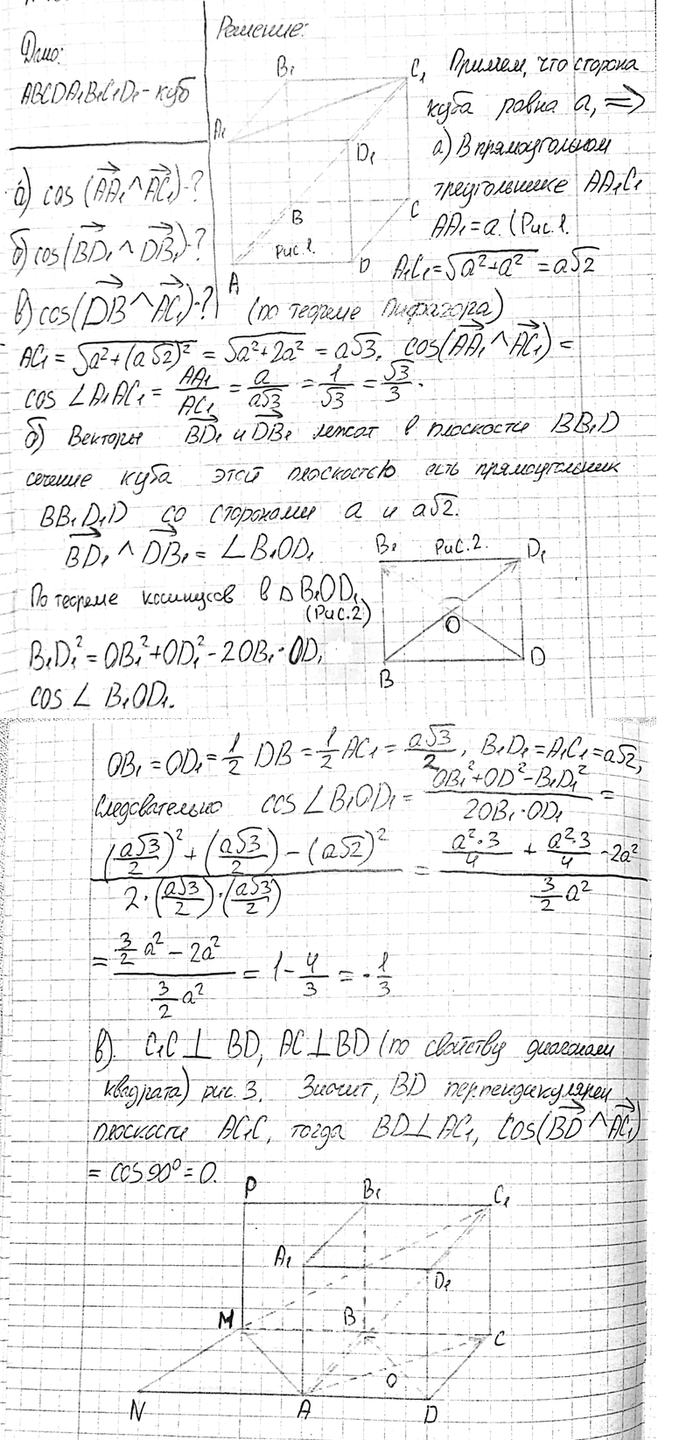 Дано:
ABCDA₁B₁C₁D₁ - куб
а) cos (AA₁ ^ AC₁) - ?
б) cos (BD₁ ^ DB₁) - ?
в) cos (DB ^ AC₁) - ?
Решение:
B₁
C₁
A₁
D₁
B
C
Рис 1.
A
D
Примем, что сторона
куба равна a, =>
а) В прямоугольном
треугольнике AA₁C₁
AA₁ = a. (Рис 1.
A₁C₁ = √a² + a² = a√2
(по теореме Пифагора)
AC₁ = √a² + (a√2)² = √a² + 2a² = a√3. cos (AA₁ ^ AC₁) =
cos ∠A₁AC₁ = AA₁/AC₁ = a/a√3 = 1/√3 = √3/3.
б) Векторы BD₁ и DB₁ лежат в плоскости BB₁D
сечение куба этой плоскостью есть прямоугольник
BB₁D₁D со сторонами a и a√2.
BD₁ ^ DB₁ = ∠B₁OD₁
По теореме косинусов в △B₁OD₁
(Рис.2)
B₁D₁² = OB₁² + OD₁² - 2OB₁·OD₁
cos ∠ B₁OD₁.
B₁
Рис.2.
D₁
O
B
D
OB₁ = OD₁ = 1/2 DB = 1/2 AC₁ = a√3/2, B₁D₁ = A₁C₁ = a√2,
следовательно cos ∠B₁OD₁ = OB₁² + OD² - B₁D₁² / 2OB₁·OD₁ =
(a√3/2)² + (a√3/2) - (a√2)² / 2·(a√3/2)·(a√3/2) = a²·3/4 + a²·3/4 - 2a² / 3/2 a²
= 3/2 a² - 2a² / 3/2 a² = 1 - 4/3 = -1/3
в). C₁C ⊥ BD, AC ⊥ BD (по свойству диагонали
квадрата) рис. 3. Значит, BD перпендикулярен
плоскости AC₁C, тогда BD ⊥ AC₁, cos (BD ^ AC₁)
= cos 90° = 0.
P
B₁
C₁
A₁
D₁
M
B
C
O
N
A
D